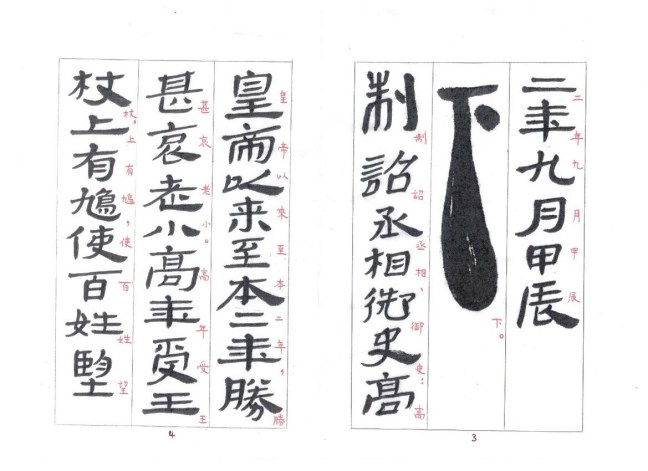 二年九月甲辰
二年九月甲辰
下
下。
制詔丞相御史高
制詔丞相,御史:高
3
皇帝以來至本二年勝
皇帝以來至本二年,勝
甚哀老小高年受王
甚哀老小。高年受王
杖上有鳩使百姓望
杖,上有鳩,使百姓望
4